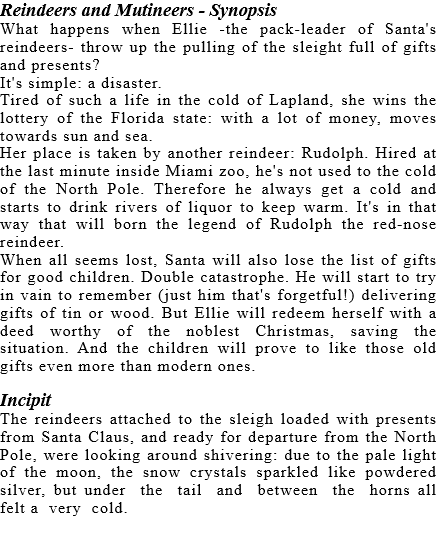 Reindeers and Mutineers - Synopsis
What happens when Ellie -the pack-leader of Santa's
reindeers- throw up the pulling of the sleight full of gifts
and presents?
It's simple: a disaster.
Tired of such a life in the cold of Lapland, she wins the
lottery of the Florida state: with a lot of money, moves
towards sun and sea.
Her place is taken by another reindeer: Rudolph. Hired at
the last minute inside Miami zoo, he's not used to the cold
of the North Pole. Therefore he always get a cold and
starts to drink rivers of liquor to keep warm. It's in that
way that will born the legend of Rudolph the red-nose
reindeer.
When all seems lost, Santa will also lose the list of gifts
for good children. Double catastrophe. He will start to try
in vain to remember (just him that's forgetful!) delivering
gifts of tin or wood. But Ellie will redeem herself with a
deed worthy of the noblest Christmas, saving the
situation. And the children will prove to like those old
gifts even more than modern ones.
Incipit
The reindeers attached to the sleigh loaded with presents
from Santa Claus, and ready for departure from the North
Pole, were looking around shivering: due to the pale light
of the moon, the snow crystals sparkled like powdered
silver, but under the tail and between the horns all
felt a very cold.